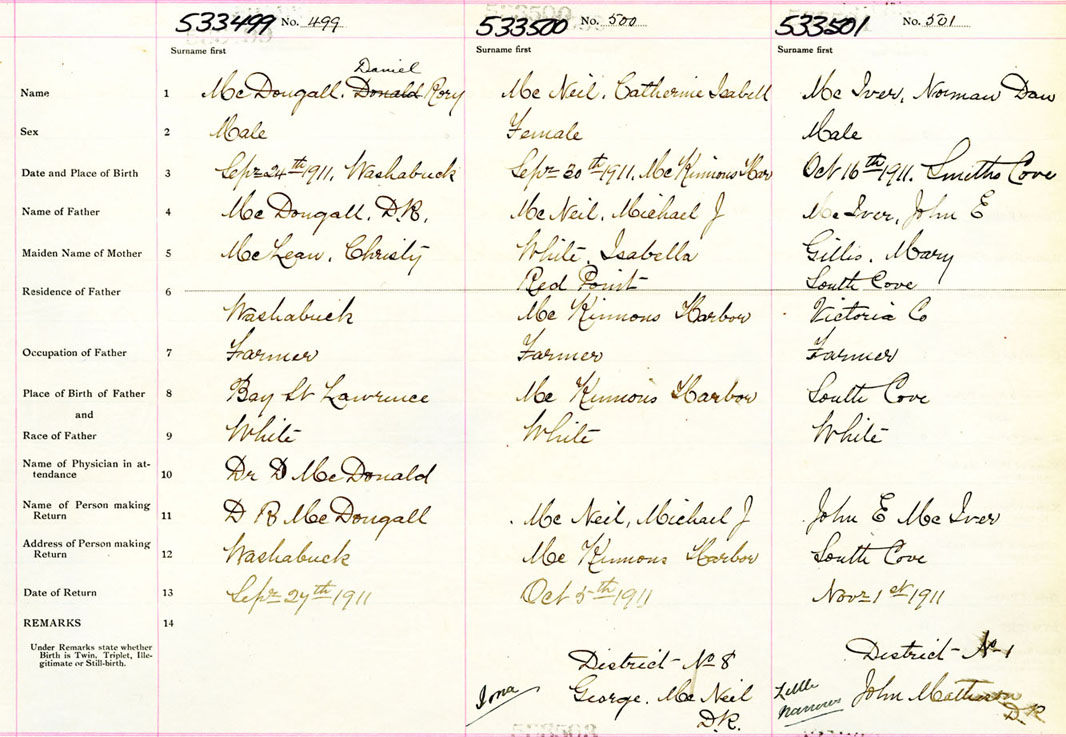 533499 No. 499 533500 No. 500 533501 No. 501
Surname first Surname first Surname first
Daniel
Name 1 Mc Dougall. Donald Rory Mc Neil. Catherine Isabell Mc Iver, Norman Dan
Sex 2 Male Female Male
Date and Place of Birth 3 Sepr 24th 1911, Washabuck Sepr 30th 1911, Mc Kinnons Har Oct 16th 1911. Smiths Cove
Name of Father 4 Mc Dougall. D.R. Mc Neil. Michael J Mc Iver, John E
Maiden Name of Mother 5 Mc Lean, Christy White, Isabella Gillis, Mary
Red Point South Cove
Residence of Father 6
Washabuck Mc Kinnons Harbor Victoria Co
Occupation of Father 7 Farmer Farmer Farmer
Place of Birth of Father 8 Bay St Lawrence Mc Kinnons Harbor South Cove
and
Race of Father 9 White White White
Name of Physician in at-
tendance 10 Dr D McDonald
Name of Person making
Return 11 D R McDougall Mc Neil, Michael J John E Mc Iver
Address of Person making
Return 12 Washabuck Mc Kinnons Harbor South Cove
Date of Return 13 Sepr 27th 1911 Oct 5th 1911 Novr 1st 1911
REMARKS 14
Under Remarks state whether
Birth is Twin, Triplet, Ille-
gitimate or Still-birth.
District No 8 District No 1
Iona George. Mc Neil Little Narrows John Matheson
D.R. D.R.